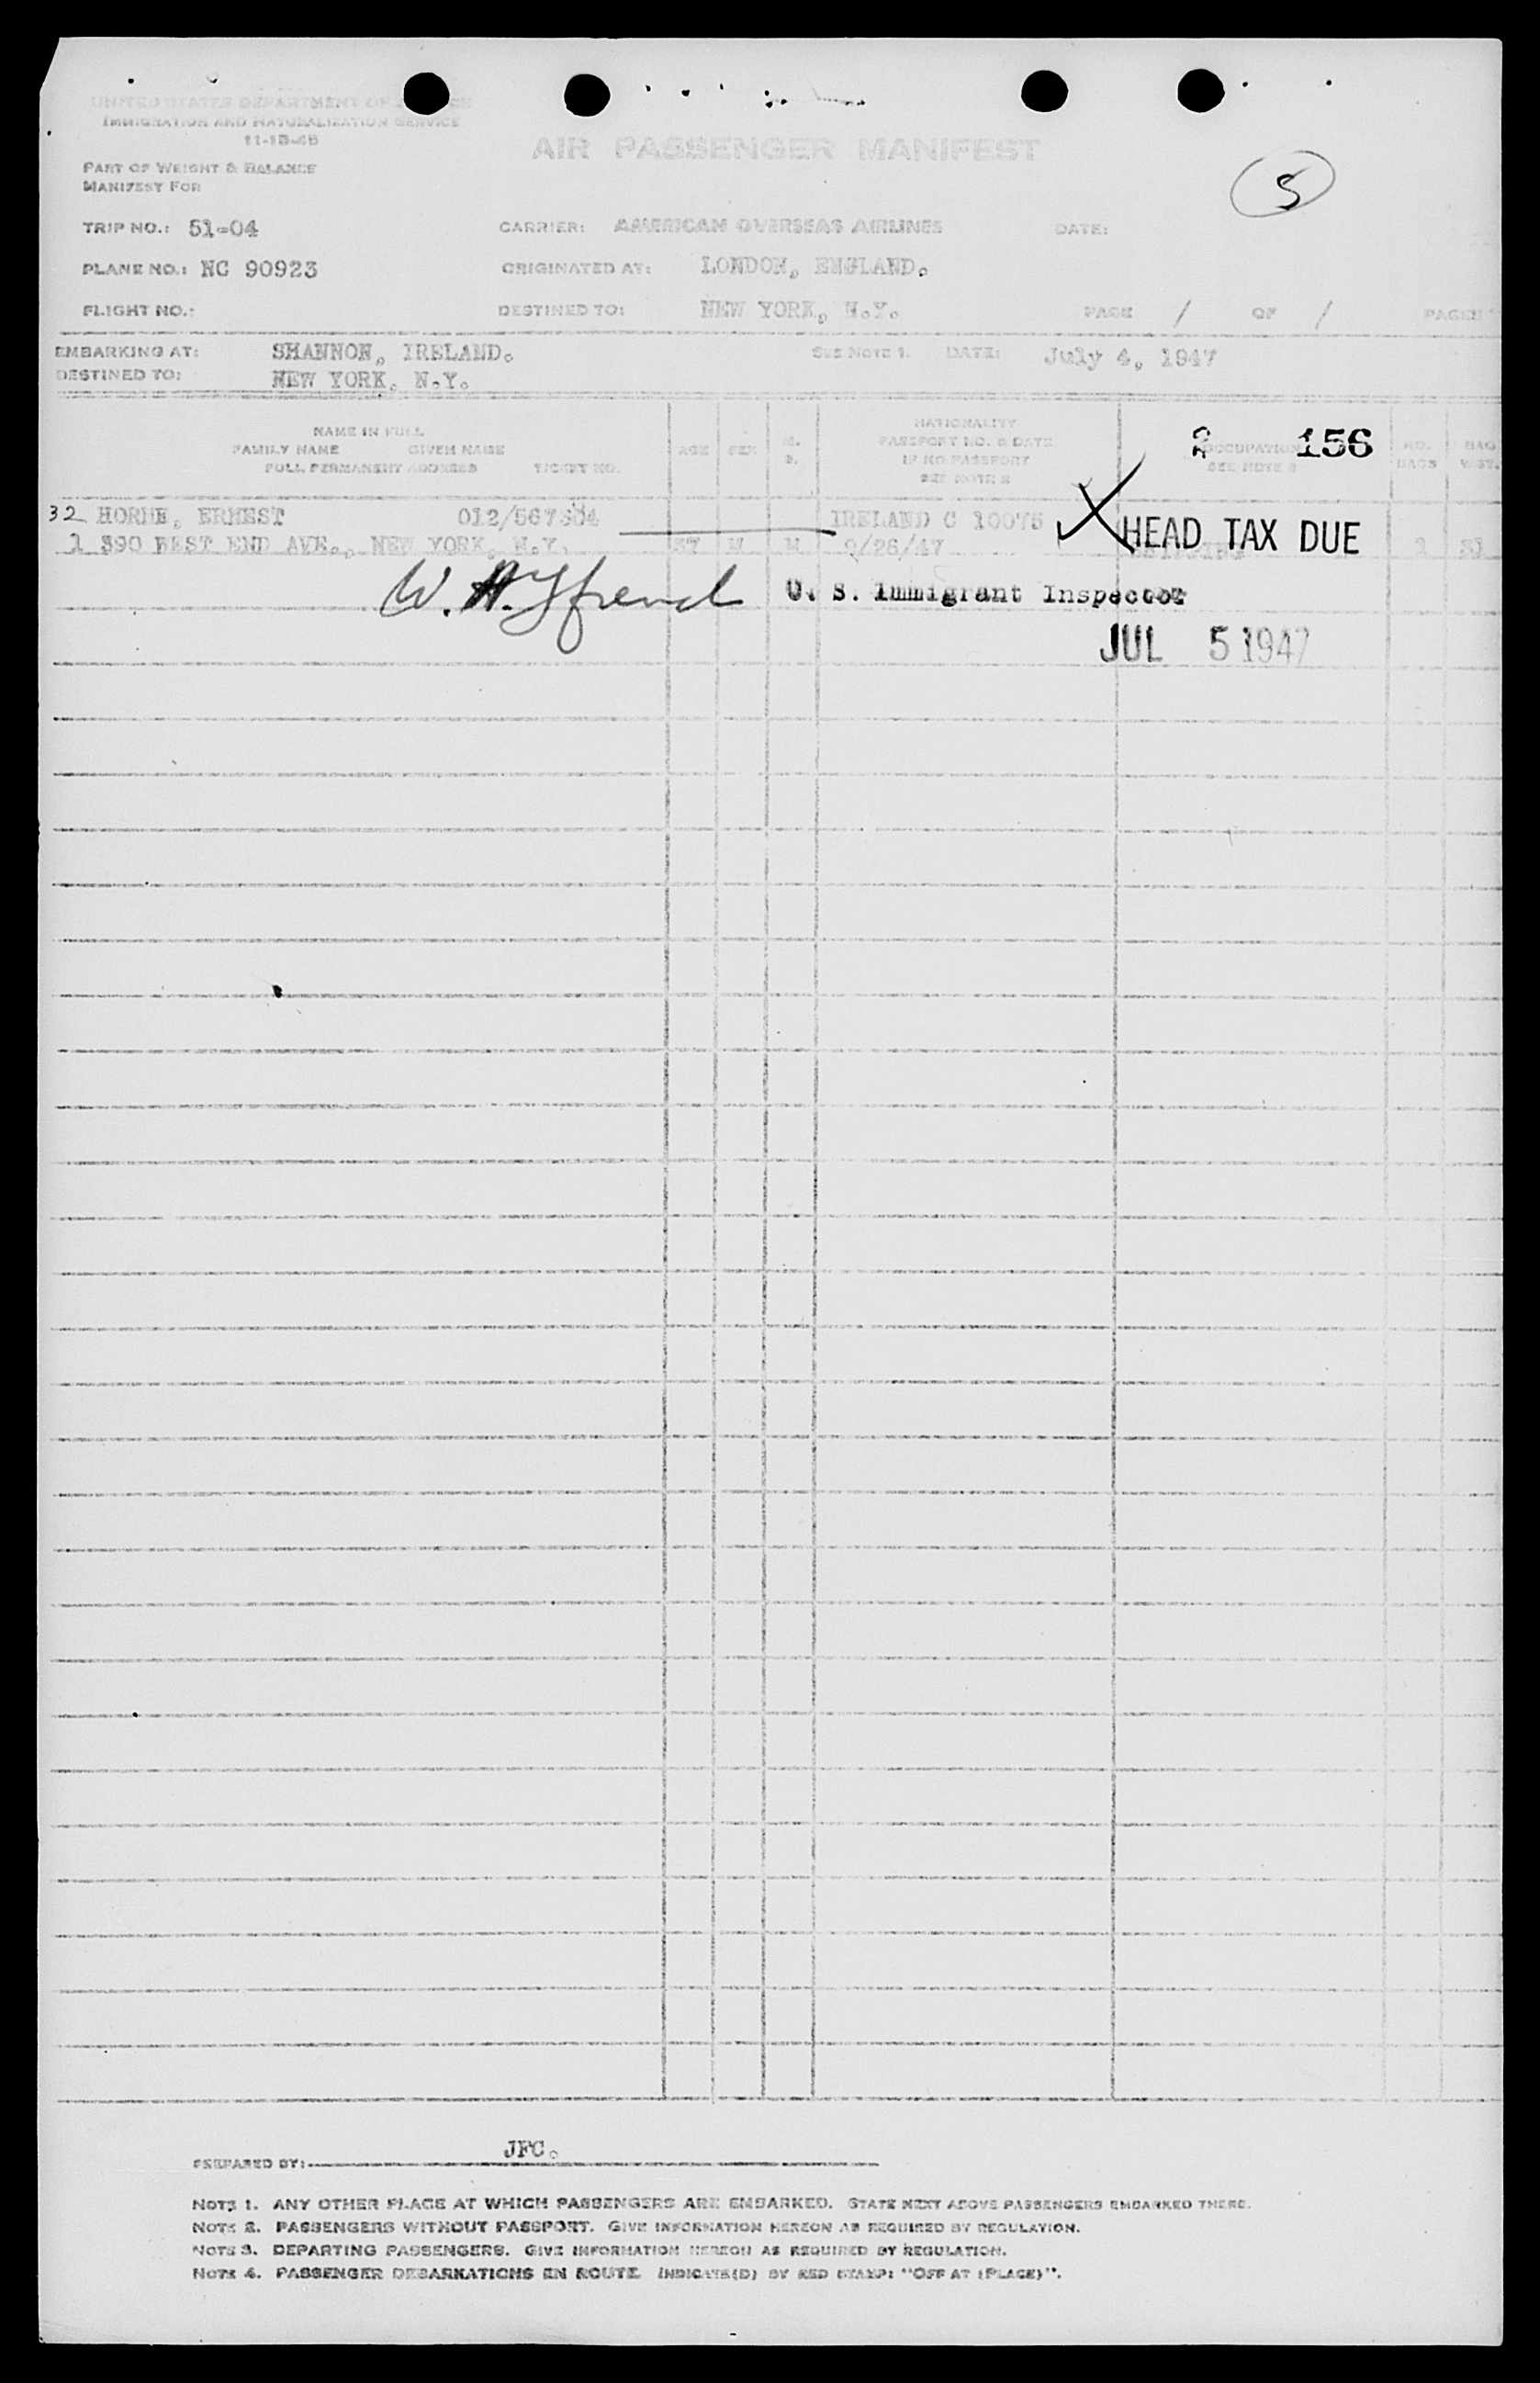 UNITED STATES DEPARTMENT OF
IMMIGRATION AND NATURALIZATION SERVICE
11-18-46
PART OF WEIGHT & BALANCE
MANIFEST FOR
AIR PASSENGER MANIFEST
5
TRIP NO.: 51-04
CARRIER: AMERICAN OVERSEAS AIRLINES
DATE:
PLANE NO.: NC 90923
ORIGINATED AT: LONDON, ENGLAND.
FLIGHT NO.:
DESTINED TO: NEW YORK, N.Y.
PAGE / OF / PAGES
EMBARKING AT: SHANNON, IRELAND.
SEE NOTE 1. DATE: July 4, 1947
DESTINED TO: NEW YORK, N.Y.
NAME IN FULL
FAMILY NAME GIVEN NAME
FULL PERMANENT ADDRESS TICKET NO.
AGE
SEX
M.
S.
NATIONALITY
PASSPORT NO. & DATE
IF NO PASSPORT
SEE NOTE 2
2 156
OCCUPATION
SEE NOTE
NO.
BAGS
BAG
WGT.
32 HORNE, ERNEST 012/567
IRELAND C 10075
HEAD TAX DUE
1 390 WEST END AVE., NEW YORK, N.Y. M M 9/26/47
W. H.
U. S. Immigrant Inspector
JUL 5 1947
PREPARED BY: JFC.
NOTE 1. ANY OTHER PLACE AT WHICH PASSENGERS ARE EMBARKED. STATE NEXT ABOVE PASSENGERS EMBARKED THERE.
NOTE 2. PASSENGERS WITHOUT PASSPORT. GIVE INFORMATION HEREON AS REQUIRED BY REGULATION.
NOTE 3. DEPARTING PASSENGERS. GIVE INFORMATION HEREON AS REQUIRED BY REGULATION.
NOTE 4. PASSENGER DEBARKATIONS EN ROUTE INDICATE(D) BY RED STAMP: "OFF AT (PLACE)".